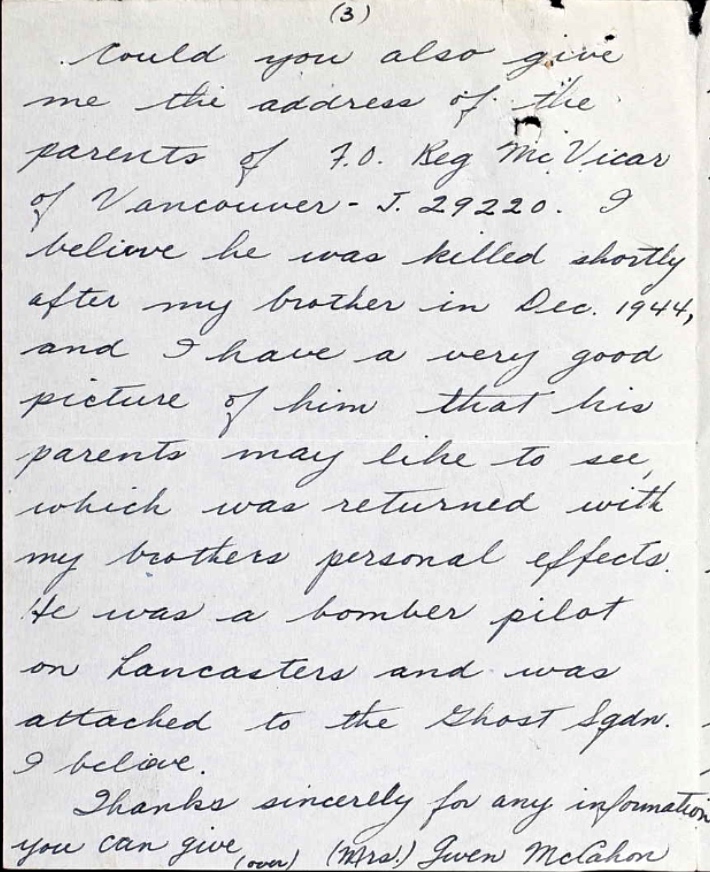 (3)
Could you also give
me the address of the
parents of F.O. Reg McVicar
of Vancouver - J. 29220. I
believe he was killed shortly
after my brother in Dec. 1944,
and I have a very good
picture of him that his
parents may like to see,
which was returned with
my brothers personal effects.
He was a bomber pilot
on Lancasters and was
attached to the Ghost Sqdn.
I believe.
Thanks sincerely for any information
you can give (over) (Mrs.) Gwen McCahon